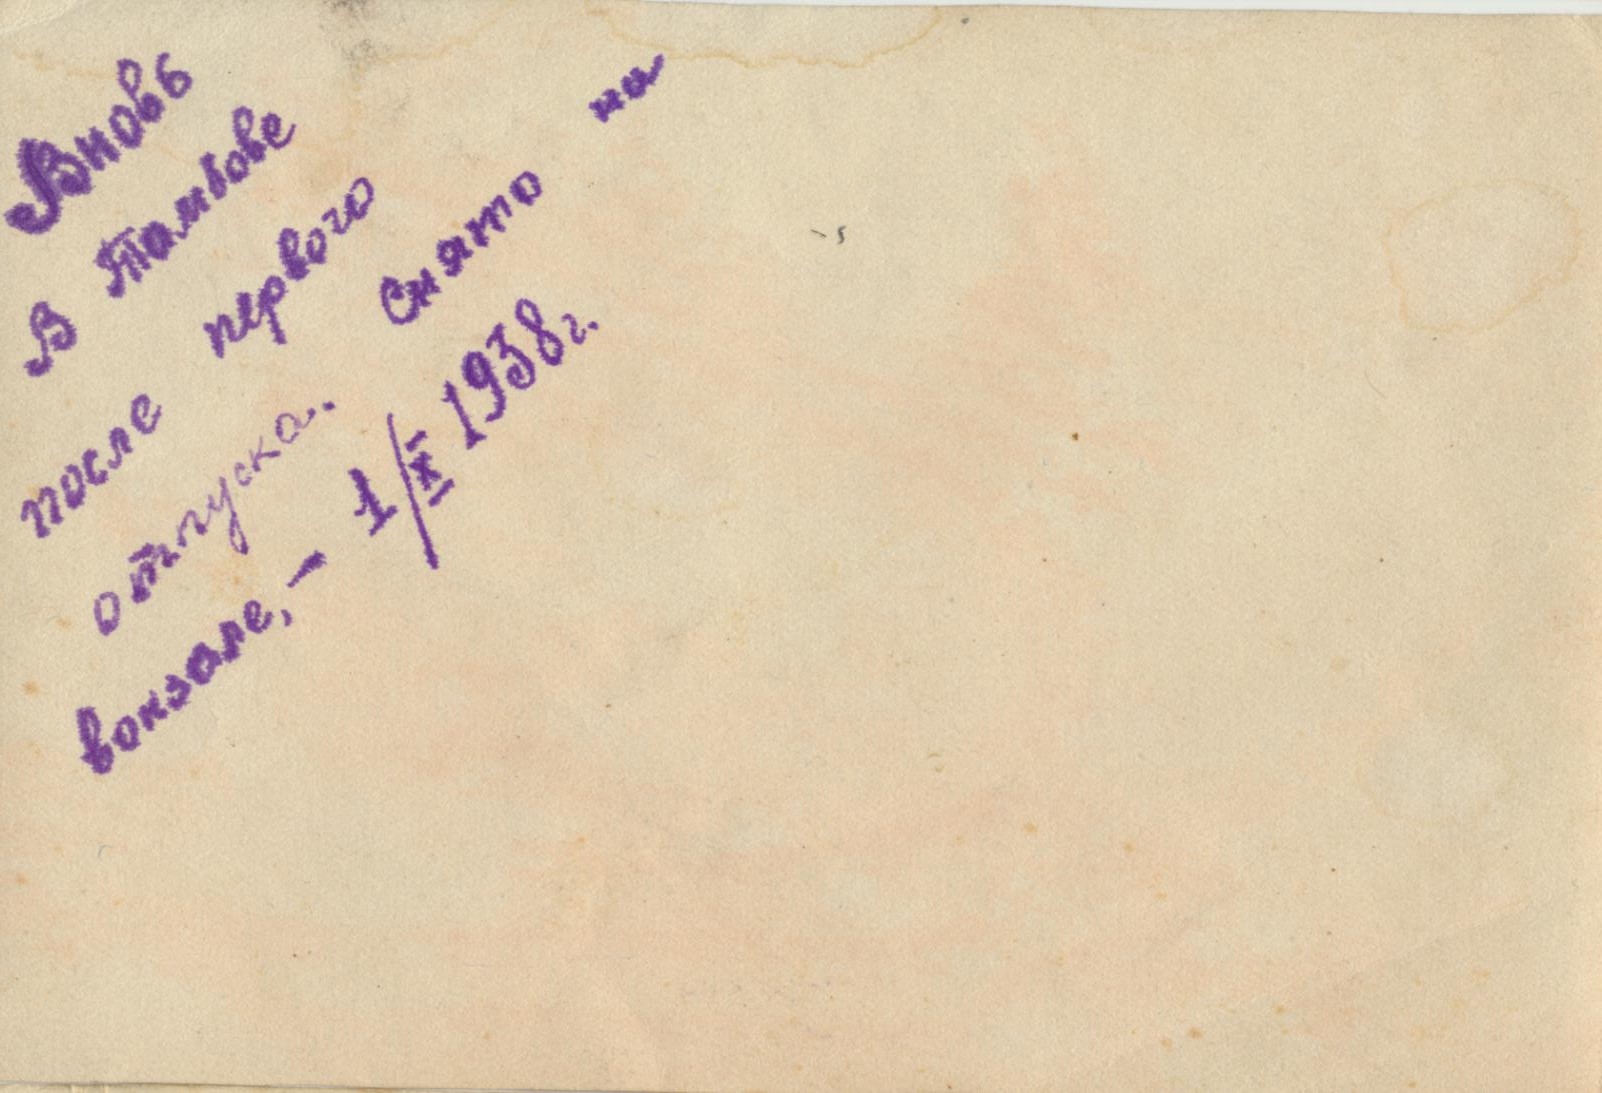 Вновь
в Тамбове
после первого
отпуска.. Снято на
вокзале, – 1/X 1938г.